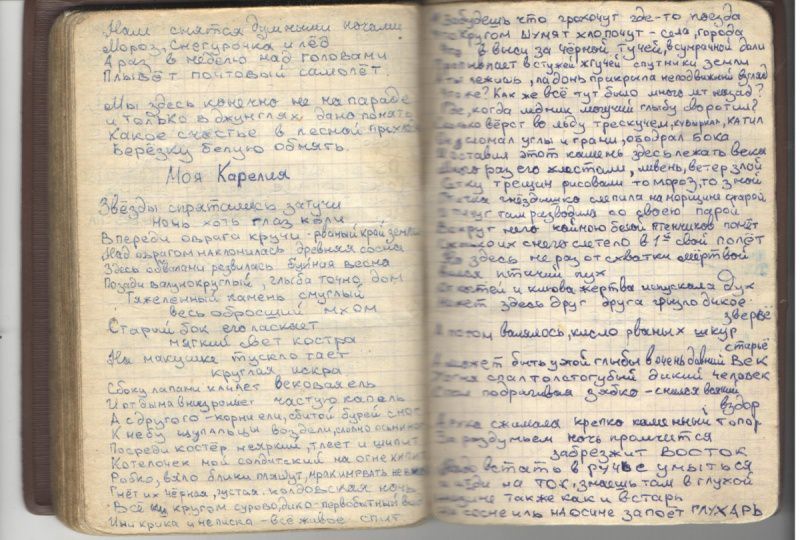 Нам снятся душными ночами
Мороз, Снегурочка и лёд
А раз в неделю над головами
Плывёт почтовый самолёт.
Мы здесь конечно не на параде
и только в джунглях дано понять
Какое счастье в лесной прохладе
Берёзку белую обнять.
Моя Карелия
Звёзды спрятались за тучи
ночь хоть глаз коли
Впереди оврага кручи - рваный край земли
Над оврагом наклонилась древняя сосна
Здесь обвалами резвилась буйная весна
Позади валун округлый, глыба точно дом
Тяжеленный камень смуглый
весь обросший мхом
Старый бок его ласкает
мягкий свет костра
На макушке тускло тает
круглая искра
Сбоку лапами кивает вековая ель
И от дыма вниз роняет частую капель
А с другого - корни ели, сбитой бурей с ног
К небу щупальцы воздели, словно осьминог
Посреди костёр неяркий, тлеет и шипит
Котелочек мой солдатский на огне кипит
Робко, вяло блики пляшут, мрак им рвать невмочь
Гнёт их чёрная, густая колдовская ночь
Всё кругом сурово, дико - первобытный вид
Ни крика и не писка - всё живое спит
Забудешь что грохочут где-то поезда
кругом шумят хлопочут - села, города
в выси за чёрной тучей, в сумрачной дали
в стуже жгучей спутники земли
лежишь, ладонь прикрыла неподвижный взгляд
же? Как же всё тут было много лет назад?
когда ледник могучий глыбу своротил?
вёрст во льду трескучем, ковырял, катил
сломал углы и грани, ободрал бока
оставил этот камень здесь лежать века
раз его хлестали, ливень, ветер злой
Сетку трещин рисовали то мороз, то зной
гнёздышко слепила на морщине старой
там разводила со своею парой
Вокруг него каймою белой птенчиков помёт
их с него слетело в 1й свой полёт
здесь не раз от схватки смертвой
вился птичий пух
когтей и клюва жертва испускала дух
здесь друг друга грызло дикое
зверьё
потом валялось, кисло рваных шкур
старьё
А может быть у этой глыбы в очень давний век
спал толстогубый дикий человек
подрагивая зябко - снился всякий
вздор
А рука сжимала крепко каменный топор
За раздумьем ночь промчится
забрезжит восток
встать в ручье умыться
и идти на ток, знаешь там в глухой
также как и встарь
На сосне иль на осине запоёт ГЛУХАРЬ